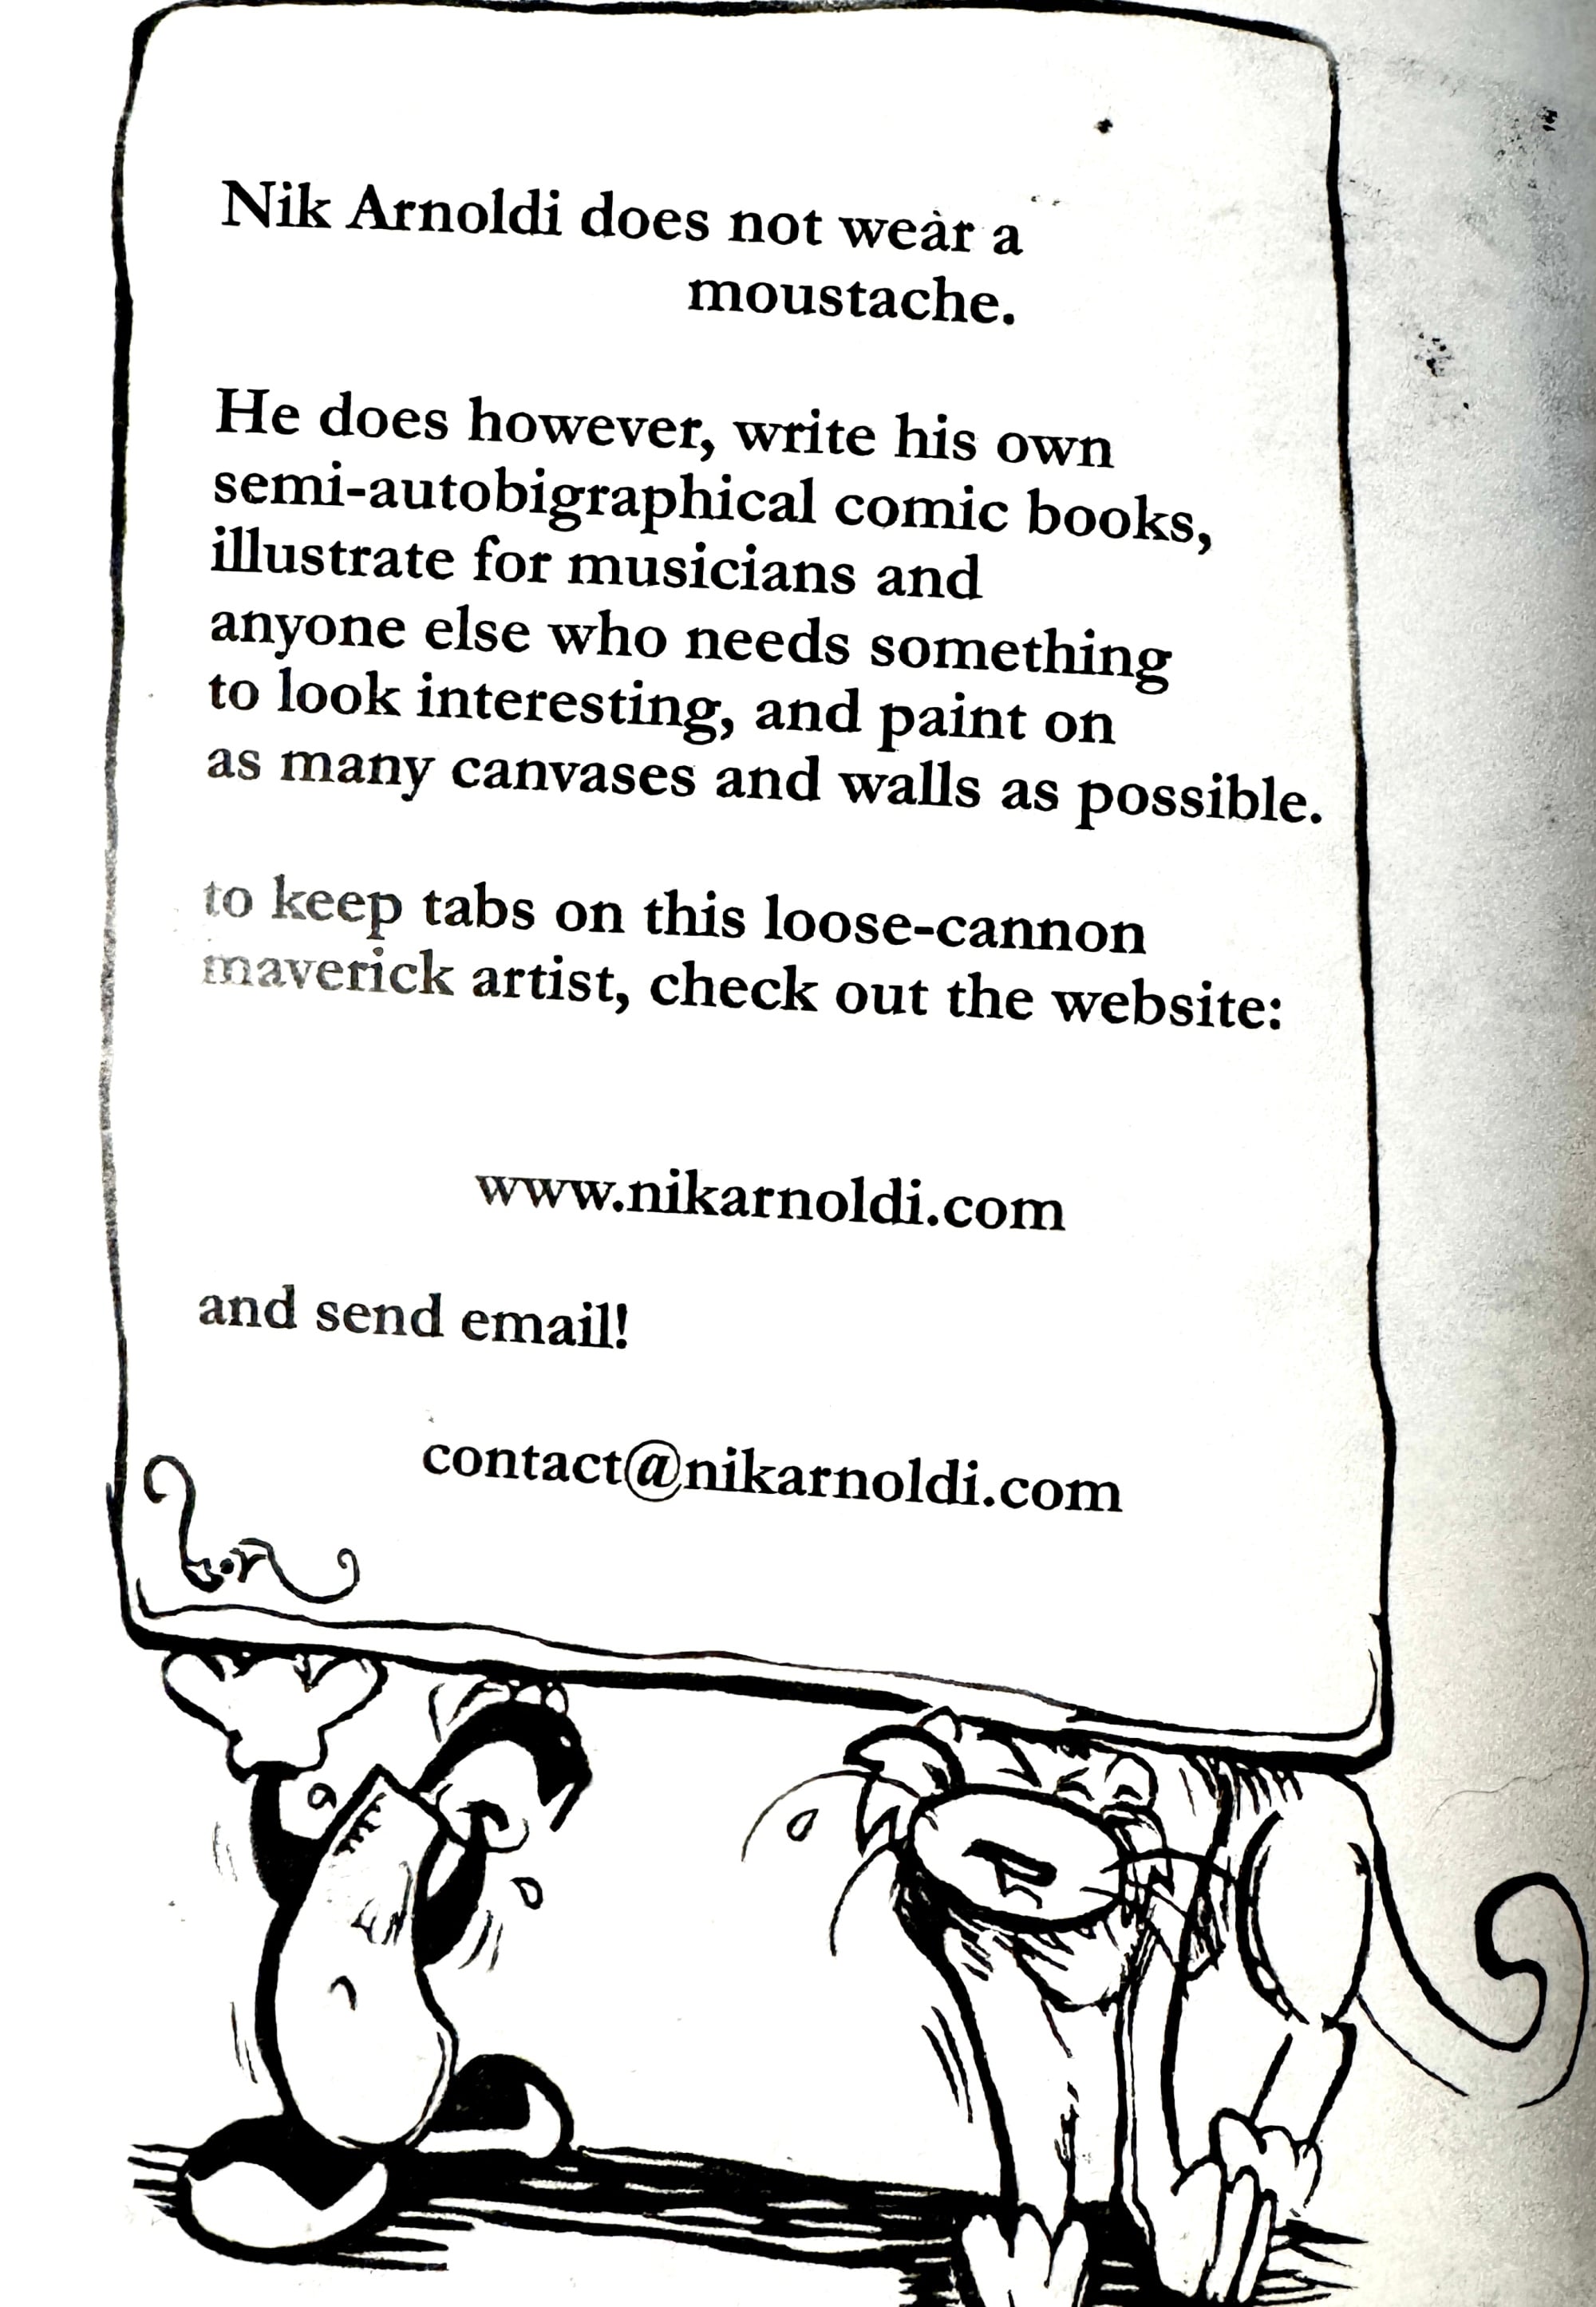 Nik Arnoldi does not wear a
moustache.
He does however, write his own
semi-autobigraphical comic books,
illustrate for musicians and
anyone else who needs something
to look interesting, and paint on
as many canvases and walls as possible.
to keep tabs on this loose-cannon
maverick artist, check out the website:
www.nikarnoldi.com
and send email!
contact@nikarnoldi.com